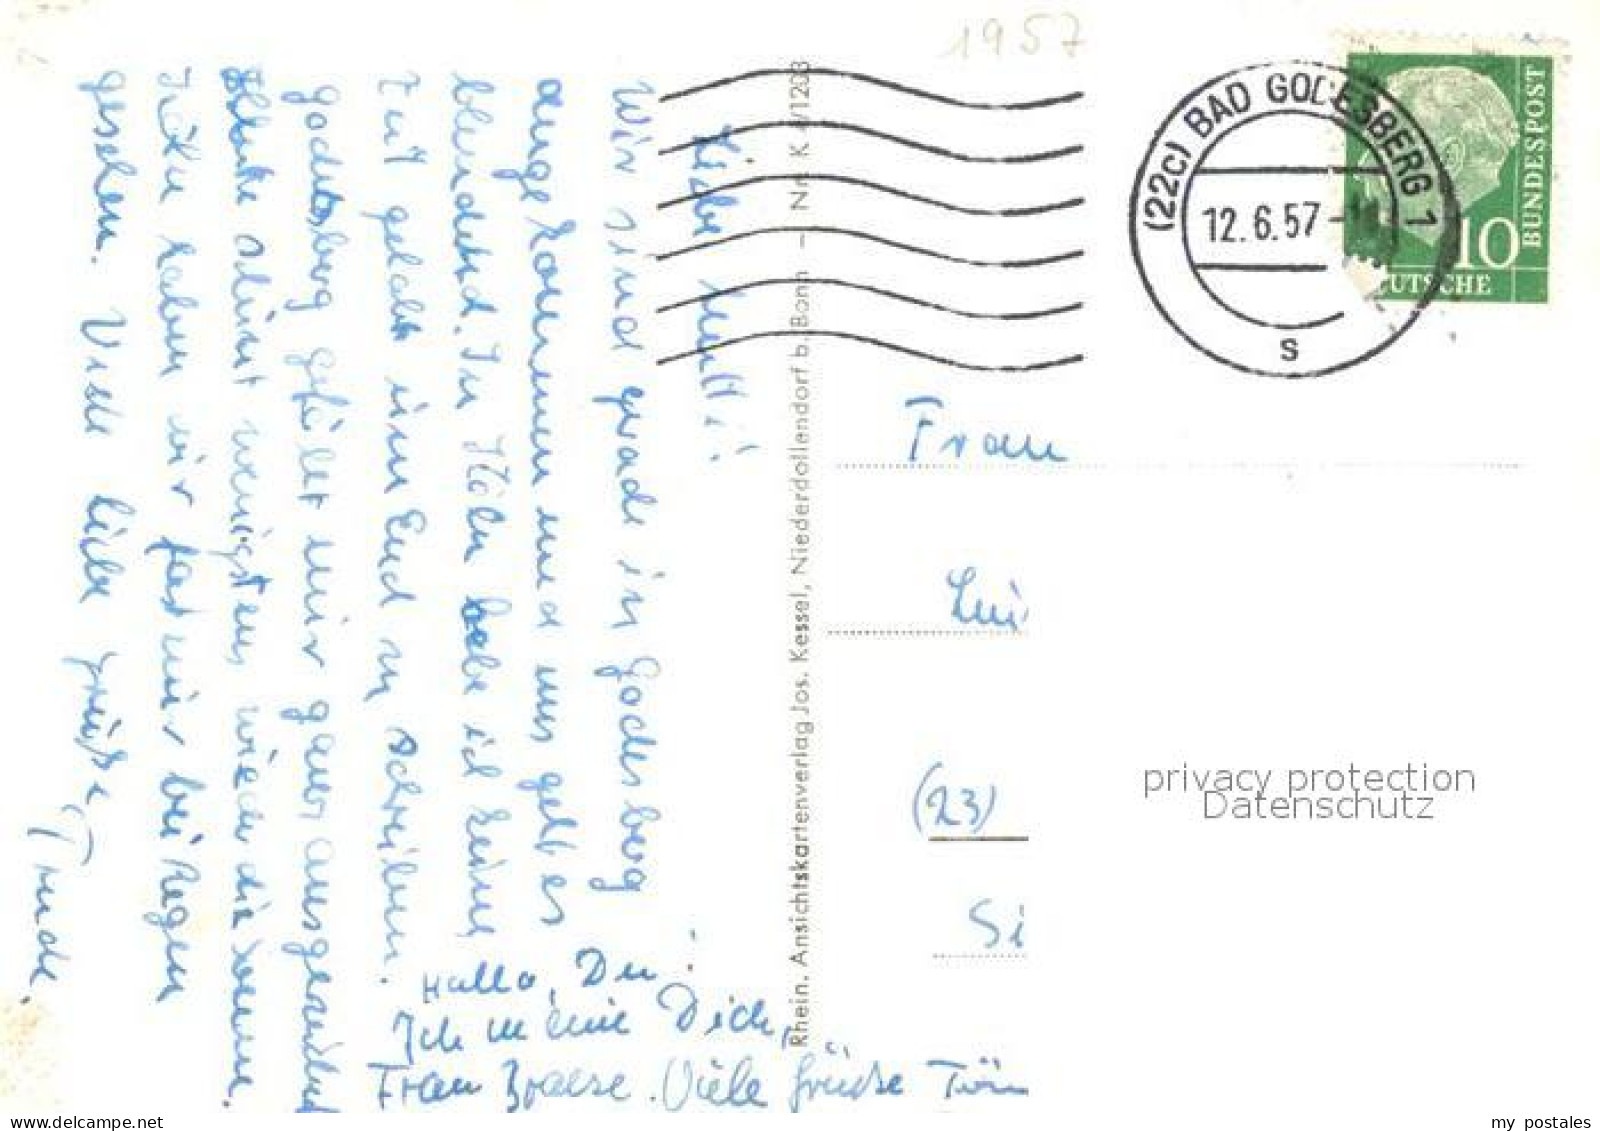 1957
(22c) BAD GODESBERG 1
12.6.57
s
DEUTSCHE
BUNDESPOST
10
Liebe Mutti!
Wir sind grade in Godesberg
angekommen und uns geht es
blendend. In Köln habe ich keine
Zeit gehabt einen Laut zu schreiben.
Godesberg gefällt mir ganz ausgezeichnet
heute scheint wenigstens wieder die Sonne.
Köln haben wir fast nur bei Regen
gesehen. Viele liebe Grüße,
Trude.
Hallo, Du!
Ich meine Dich,
Frau Braese. Viele Grüße
Rhein. Ansichtskartenverlag Jos. Kessel, Niederdollendorf b. Bonn – Nr. K 4/1203
Frau
(23)
Si
privacy protection
Datenschutz
my postales
www.delcampe.net